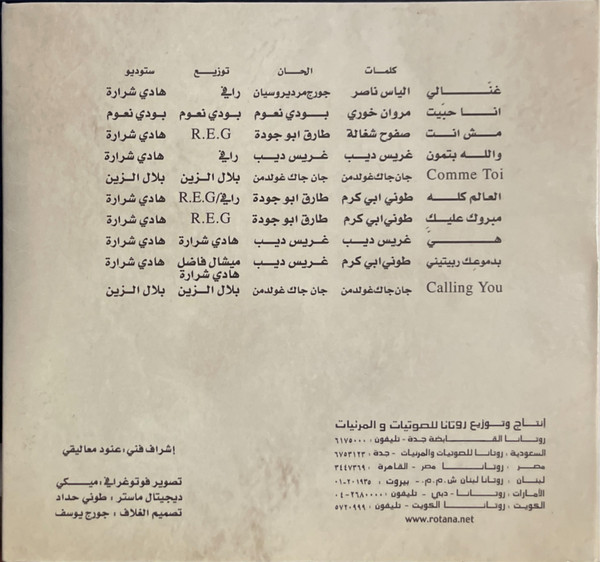 كلمات الحان توزيع ستوديو
غنّالي الياس ناصر جورج مرديروسيان رافي هادي شرارة
انا حبّيت مروان خوري بودي نعوم بودي نعوم بودي نعوم
مش انت صفوح شغالة طارق ابو جودة R.E.G هادي شرارة
والله بتمون غريس ديب غريس ديب رافي هادي شرارة
Comme Toi جان جاك غولدمن جان جاك غولدمن بلال الزين بلال الزين
العالم كله طوني ابي كرم طارق ابو جودة رافي/R.E.G هادي شرارة
مبروك عليك طوني ابي كرم طارق ابو جودة R.E.G هادي شرارة
هيّ غريس ديب غريس ديب هادي شرارة هادي شرارة
بدموعك ربيتيني طوني ابي كرم غريس ديب ميشال فاضل هادي شرارة
هادي شرارة
Calling You جان جاك غولدمن جان جاك غولدمن بلال الزين بلال الزين
إنتاج وتوزيع روتانا للصوتيات و المرئيات
روتانا القابضة جدة - تليفون : ٦١٧٥٠٠٠
السعودية : روتانا للصوتيات والمرئيات - جدة : ٦٧٥٣١٢٣
مصر : روتانا مصر - القاهرة : ٣٤٤٧٣٦٩
لبنان : روتانا لبنان ش.م.م. - بيروت : ٠١-٢٠١٩٣٥
الأمارات : روتانا - دبي - تليفون : ٠٤-٢٦٨٠٠٠٠
الكويت : روتانا الكويت - تليفون : ٥٧٢٠٩٩٩
www.rotana.net
إشراف فني : عنود معاليقي
تصوير فوتوغرافي : ميكي
ديجيتال ماستر : طوني حداد
تصميم الغلاف : جورج يوسف